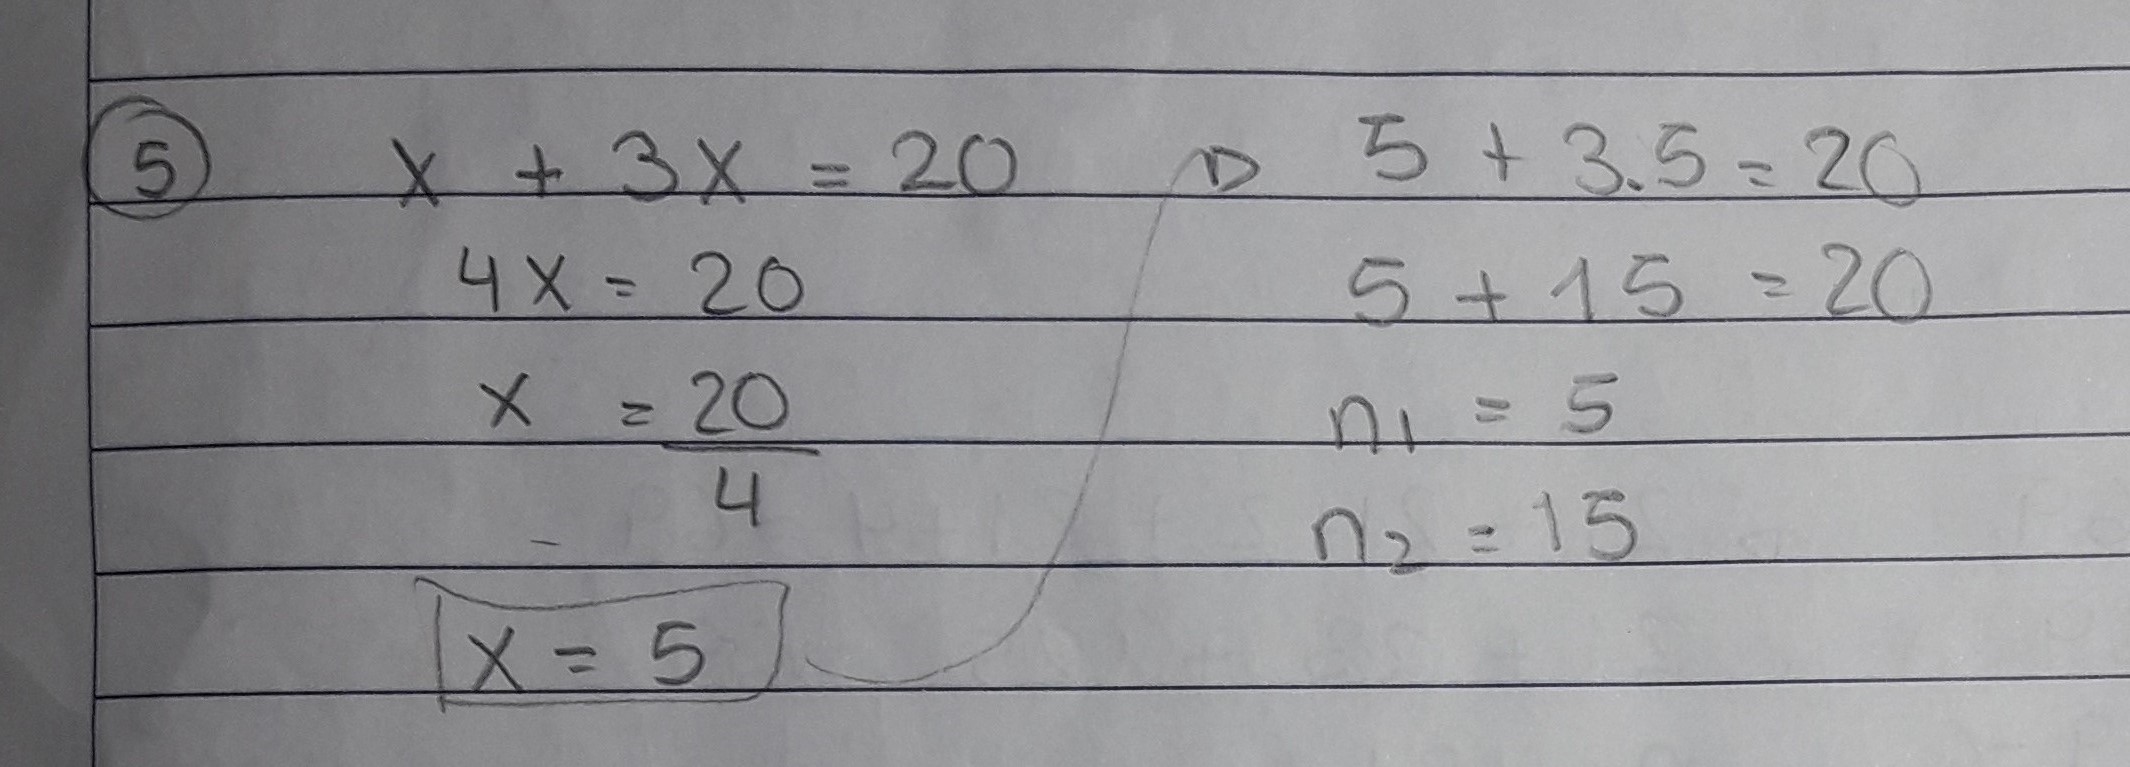 5
x + 3x = 20
4x = 20
x = 20
4
x = 5
5 + 3.5 = 20
5 + 15 = 20
n1 = 5
n2 = 15